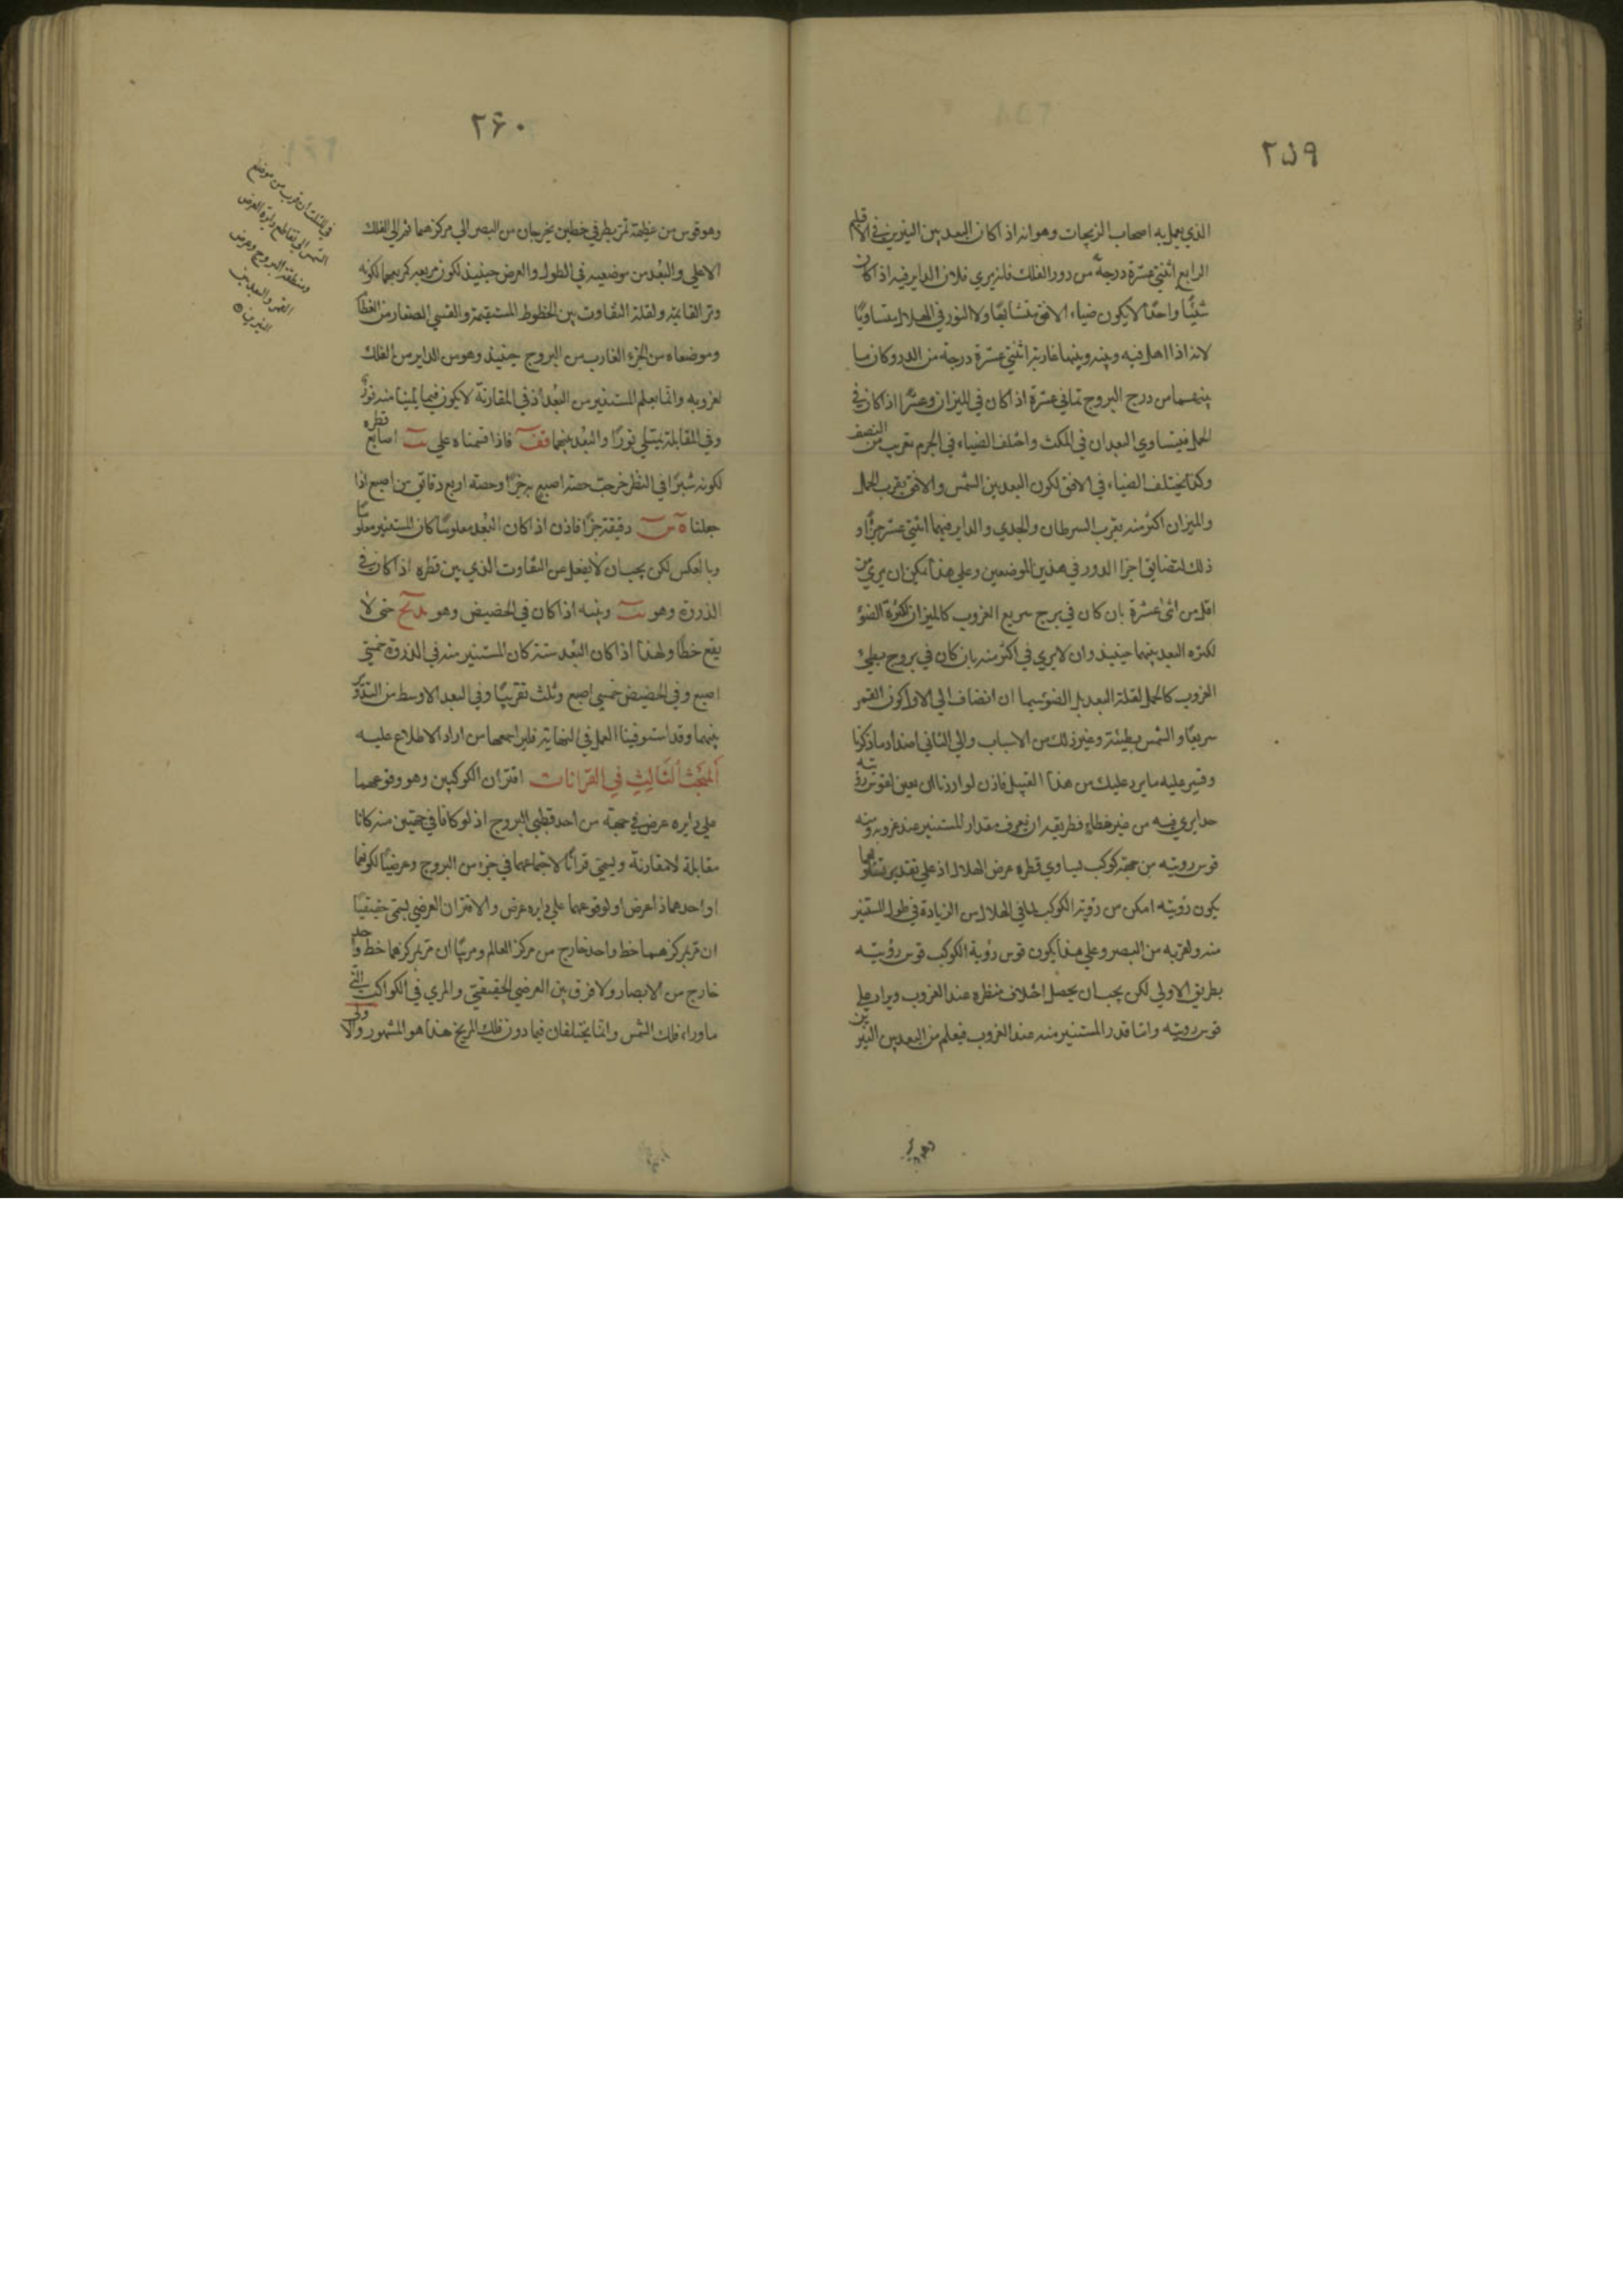 ٢٥٩
الذي يعمل به اصحاب الزيجات وهو انه اذا كان البعد بين النيرين في الاقليم
الرابع اثنتي عشرة درجة من دور الفلك فانه يري فلان الداير فيه اذا كان
شيئًا واحدًا لا يكون ضياء الافق متشابهًا ولا النور في الهلال متساويًا
لانه اذا اهل فيه وبينه وبينها غاربة اثنتي عشرة درجة من الدور وكان ما
بينهما من درج البروج ثماني عشرة اذا كان في الميزان وعشرًا اذا كان في
الحمل فيتساوي البعدان في المكث واختلف الضياء في الجرم بقريب من النصف
وكذا يختلف الضياء في الافق لكون البعد بين الشمس والافق بقرب الحمل
والميزان اكثر منه بقرب السرطان والجدي والداير فيهما اثني عشر جزًا و
ذلك لتضايق اجزا الدور في هذين الموضعين وعلي هذا يمكن ان يري في
اقل من اثنا عشرة بان كان في برج سريع الغروب كالميزان لكثرة الضؤ
لكثره البعد بينهما حينيذ وان لا يري في اكثر منه بان كان في بروج بطئ
الغروب كالحمل لقلة البعد بل الضؤ سيما ان انضاف الي الاول كون القمر
سريعًا والشمس بطيئة وغير ذلك من الاسباب والي الثاني اضداد ما ذكرنا
وقس عليه ما يرد عليك من هذا القبيل فاذن لو اردنا ان يعين لقوس رؤيته
حدا يري فيه من غير خطاء فطريقه ان نعرف مقدار المستنير عند غروبه ومنه
قوس رؤيته من جهة كوكب يساوي قطره عرض الهلال اذ علي تقدير تساويهما
يكون رؤيته امكن من رؤية الكوكب لما في الهلال من الزيادة في طول المستنير
منه ولقربه من البصر وعلي هذا يكون قوس رؤية الكوكب قوس رؤيته
بطريق الاولي لكن يجب ان يحصل اختلاف منظره عند الغروب ويزاد علي
قوس رويته واما قدر المستنير منه عند الغروب فيعلم من البعد بين النيرين
٢٦٠
وهو قوس من عظيمة تمر بطرفي خطين يخرجان من البصر الي مركزهما ثم الي الفلك
الاعلي والبعد من موضعيه في الطول والعرض حينيذ لكون مربعه كمربعيهما لكونه
وتر القايمة ولقلة التفاوت بين الخطوط المستقيمة والقسي الصغار من العظام
وموضعاه من الجزء الغارب من البروج حينيذ وهو من الداير من الفلك
لغروبه وانما يعلم المستنير من البعد اذ في المقارنة لا يكون فيما يلينا منه نور
وفي المقابلة يمتلي نورًا والبعد بينهما قف فاذا قسمناه علي يب اصابع قطره
لكونه شبرًا في النظر خرجت حصة اصبع يه جزًا وحصته اربع دقائق من اصبع اذا
جعلناه س دقيقة جزًا فاذن اذا كان البعد معلومًا كان المستنير معلومًا
وبالعكس لكن يجب ان لا يغفل عن التفاوت الذي بين قطره اذا كان في
الذروة وهو يب وبينه اذا كان في الحضيض وهو يد ح حتي لا
يقع خطًا ولهذا اذا كان البعد ستة كان المستنير منه في الذروة خمسي
اصبع وفي الحضيض خمسي اصبع وثلث تقريبًا وفي البعد الاوسط من التدوير
بينهما وقد استوفينا العمل في النهاية فليراجعها من اراد الاطلاع عليه
المبحث الثالث في القرانات اقتران الكوكبين وهو وقوعهما
علي دايره عرض في جهة من احد قطبي البروج اذ لو كانا في جهتين منه كانا
مقابلة لا مقارنة ويسمي قرانًا لاجتماعهما في جزء من البروج وعرضيًا لكونهما
او احدهما ذا عرض او لوقوعهما علي دايره عرض والاقتران العرضي يسمي حقيقيًا
ان مر بمركزهما خط واحد خارج من مركز العالم ومرييًا ان مر بمركزهما خط واحد
خارج من الابصار ولا فرق بين العرضي الحقيقي والمري في الكواكب التي
ماوراء فلك الشمس وانما يختلفان فيما دون فلك المريخ هذا هو المشهور والاولي
من موضع
الشمس الي تقاطع دايرة العرض
ومنطقة البروج وعرض
القمر والبعد بين
النيرين